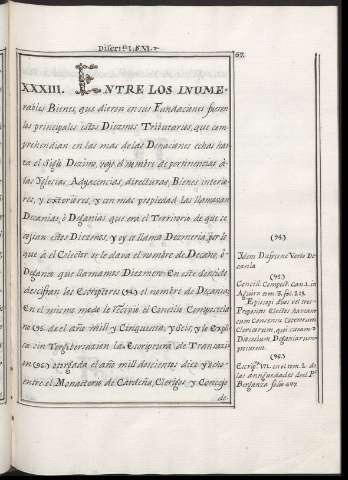 Discri.ⁿ LEXI.ᵃ
67.
XXXIII. ENTRE LOS INUME-
rables Bienes, que dieron en sus Fundaciones fueron
los principales estos Diezmos Tributarios, que com-
prehendian en las mas de las Donaciones echas has-
ta el Siglo Dezimo, vajo el nombre de pertinencias à
las Yglesias Adyacencias, directuras, Bienes interio-
res, y exteriores, y con mas propiedad las llamavan
Decanias, ò Deganias que era el Territorio de que se
cojian estos Diezmos, y oy se llama Dezmeria, por lo
que à el Colector se le da el nombre de Decano, ò
Degano que llamamos Diezmero. En este sentido
descifran los Escriptores (94) el nombre de Decania,
En el mismo modo le recopia el Concilio Composcela
no (95) de el año mill y Cinquenta, y seis, y le Expli
ca sin Tergiversazion la Escriptura de Transazion
(96) otorgada el año mill doscientos diez y ocho
entre el Monasterio de Cardeña, Clerigos, y Concejo
de
(94)
Idem Dufresne Verbo De
cania
(95)
Concil. Compost. Can. 1. in
Aguirre tom. 3. fol. 219.
Episcopi
Clericorum, qui causam
Diaecesum Deganiarum
procurent.
(96)
Escrip.ᵃ VII. en el tom. 2. de
las antiguedades del P.ᵉ
Berganza folio 447